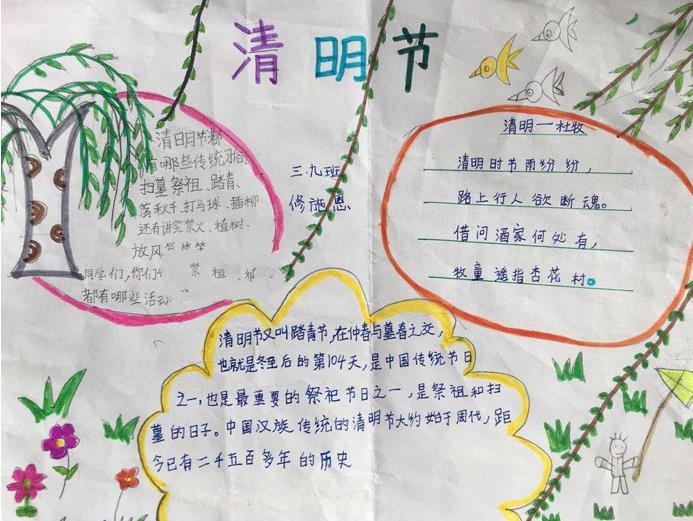 清明节
清明节都
有哪些传统习俗
扫墓祭祖、踏青、
荡秋千、打马球、插柳
还有讲究禁火、植树、
放风筝
同学们,你们
都有哪些活动
三.九班
修施恩
清明一杜牧
清明时节雨纷纷,
路上行人欲断魂。
借问酒家何处有,
牧童遥指杏花村。
清明节又叫踏青节,在仲春与暮春之交,
也就是冬至后的第104天,是中国传统节日
之一,也是最重要的祭祀节日之一,是祭祖和扫
墓的日子。中国汉族传统的清明节大约始于周代,距
今已有二千五百多年的历史